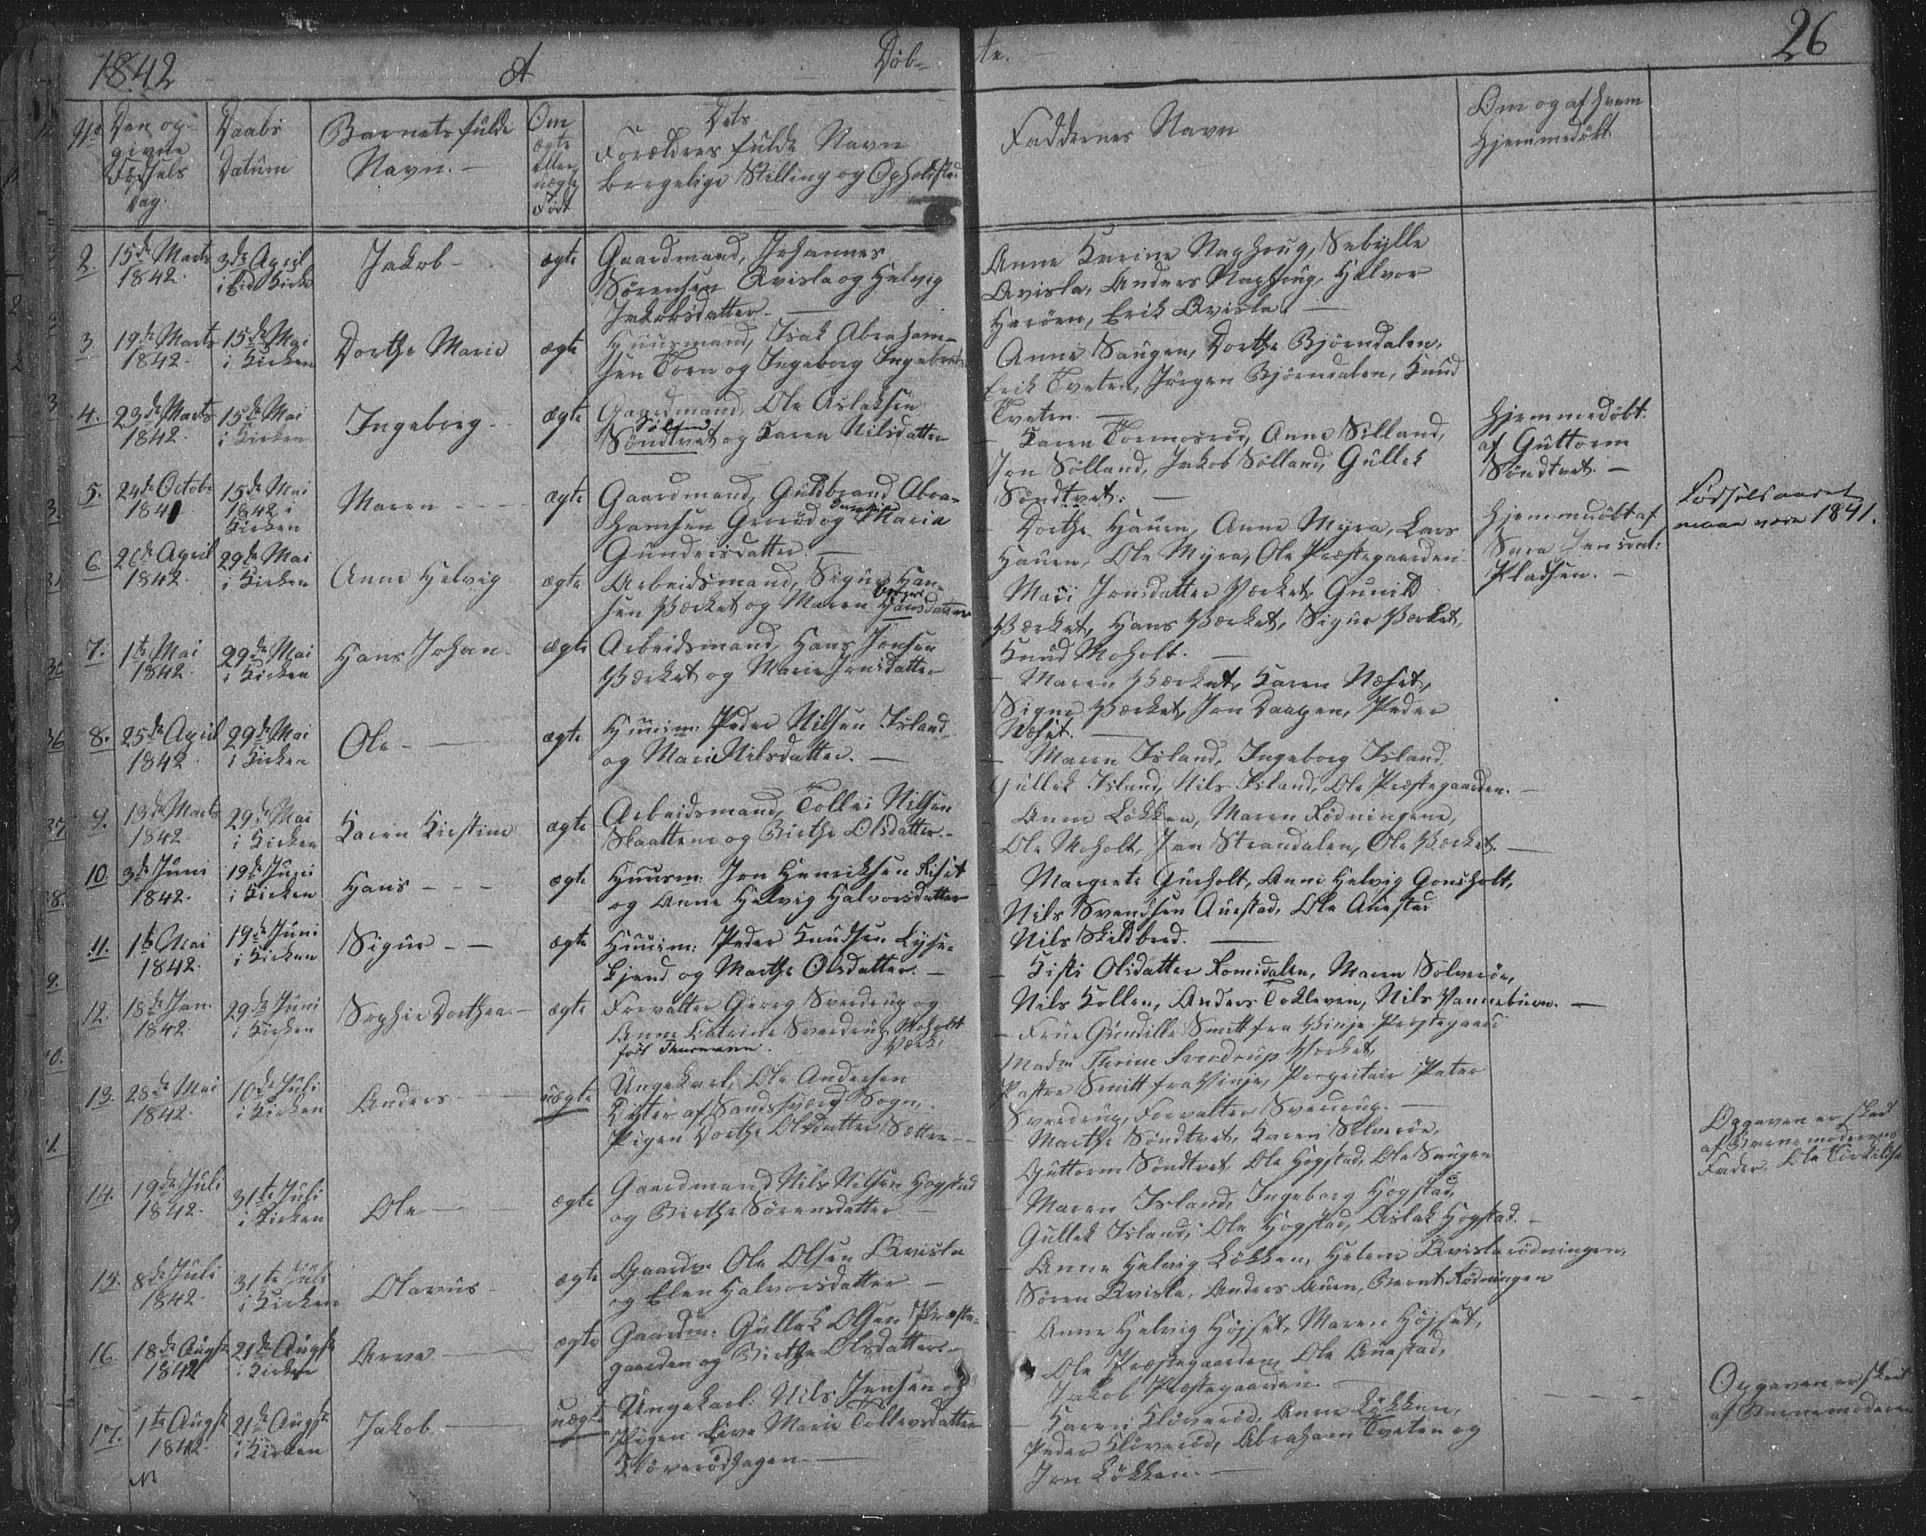 1842
A
Døb-
te.
26
No
Den og-
givne
Fødsels
Dag.
Daabs
Datum
Barnets fulde
Navn.
Om
ægte
eller
uægte
Født
Dets
Forældres fulde Navn
borgelige Stilling og Opholdsted
Faddernes Navn
Om og af hvem
hjemmedøbt
2.
15de Marts
1842.
3de April
i Eid. Kirke
Jakob
ægte
Gaardmand, Johannes
Sørensen Qvisla og Helvig
Jakobsdatter.
Anne Karine Naphoug, Sebylle
Qvisla, Anders Naphoug, Halvor
Haröen, Erik Qvisla.
3.
19de Marts
1842.
15de Mai
i Kirken
Dorthe Marie
ægte
Huusmand, Isak Abraham-
sen Torn og Ingeborg Ingebret
Anne Saugen, Dorthe Bjørndalen,
Erik Tveten, Jørgen Bjørndalen, Knud
Tveten.
4.
23de Marts
1842.
15de Mai
i Kirken
Ingeborg
ægte
Gaardmand, Ole Aslaksen
Søndtvet og Karen Nilsdatter
Karen Tormosrød, Anne Sølland,
Jon Sølland, Jakob Sølland, Gullek
Søndtvet.
Hjemmedøbt
af Guttorm
Søndtvet.
5.
24de Octobr
1841
15de Mai
1842 i
Kirken
Maren
ægte
Gaardmand, Guldbrand Abra-
hamsen Grorød og Maria
Gundersdatter
Dorthe Hauen, Anne Myra, Lars
Hauen, Ole Myra, Ole Præstegaarden
Hjemmedøbt af
Sara
Pladsen.
Fødselsaaret
maa være 1841.
6.
26de April
1842.
29de Mai
i Kirken
Anne Helvig
ægte
Arbeidsmand, Sigur Han-
sen Værket og Maren Hansdatter
Mari Jonsdatter Værket, Gunild
Værket, Hans Værket, Sigur Værket,
Knud Moholt.
7.
1te Mai
1842.
29de Mai
i Kirken
Hans Johan
ægte
Arbeidsmand, Hans Jonsen
Værket og Marie Jonsdatter
Maren Værket, Karen Næset,
Signe Værket, Jon Daagen, Peder
Næset.
8.
25de April
1842
29de Mai
i Kirken
Ole
ægte
Huusm: Peder Nilsen Island
og Mari Nilsdatter.
Maren Island, Ingeborg Island,
Gullek Island, Nils Island, Ole Præstegaarden.
9.
13de Marts
1842.
29de Mai
i Kirken
Karen Kirstine
ægte
Arbeidsmand, Tollei Nilsen
Slaattene og Birthe Olsdatter.
Anne Løkken, Maren Rödningene,
Ole Moholt, Jon Strandalen, Ole Værket
10.
3de Juni
1842.
19de Juni
i Kirken
Hans
ægte
Huusm: Jon Henriksen Riset
og Anne Helvig Halvorsdatter
Margrete Gusholt, Anne Helvig Gonsholt,
Nils Svendsen Auestad, Ole Auestad
Nils Skildbred.
11.
1te Mai
1842.
19de Juni
i Kirken
Sigur
ægte
Huusm: Peder Knudsen Lyse-
kjend og Marthe Olsdatter.
Kisti Olsdatter Romsdalen, Maren Solverøe,
Nils Kollen, Anders Tokleven, Nils Vannebuen.
12.
18de Jan.
1842
29de Juni
i Kirken
Sophie Dorthea
ægte
Forvalter Georg Sverdrup og
Anne Katrine Sverdrup Moholdt
født Thurmann.
Værk.
Frue Gundille Smitt fra Vinje Præstegaard
Madm Thrine Sverdrup Værket,
Pastor Smitt fra Vinje, Propritair Peter
Sverdrup, Forvalter Sverdrup.
13.
28de Mai
1842.
10de Juli
i Kirken
Anders
uægte
Ungekarl, Ole Andersen
af Sandshverd Sogn,
Pigen Dorthe Olsdatter Sætter
Marthe Søndtvet, Karen Solverøe,
Guttorm Søndtvet, Ole Hogstad, Ole Saugen
Opgaven er sked
af Barnemoderens
Fader Ole
14.
19de Juli
1842.
31te Juli
i Kirken
Ole
ægte
Gaardmand Nils Nilsen Hogstad
og Birthe Sørensdatter
Maren Island, Ingeborg Hogstad,
Gullek Island, Ole Hogstad, Aslak Hogstad.
15.
8de Juli
1842.
31te Juli
i Kirken
Olavus
ægte
Gaardm. Ole Olsen Qvisla
og Elen Halvorsdatter
Anne Helvig Løkken, Helene Qvislarødningen,
Søren Qvisla, Anders Auen, Bernt Rødningen
16.
18de Augst
1842
21de Augst
i Kirken
Arve
ægte
Gaardm: Gullek Olsen Præste-
gaarden og Birthe Olsdatter.
Anne Helvig Højset, Maren Højset,
Ole Præstegaarden, Ole Auestad,
Jakob Præstegaarden.
17.
1te Augst
1842.
21de Augst
i Kirken
Jakob
uægte
Ungekarl: Nils Jensen og
Pigen Live Marie Tollevsdatter
Kløverødhagen.
Karen Kløverød, Anne Løkken,
Peder Kløverød, Abraham Tveten og
Jon Løkken.
Opgaven er sked
af Barnemoderen